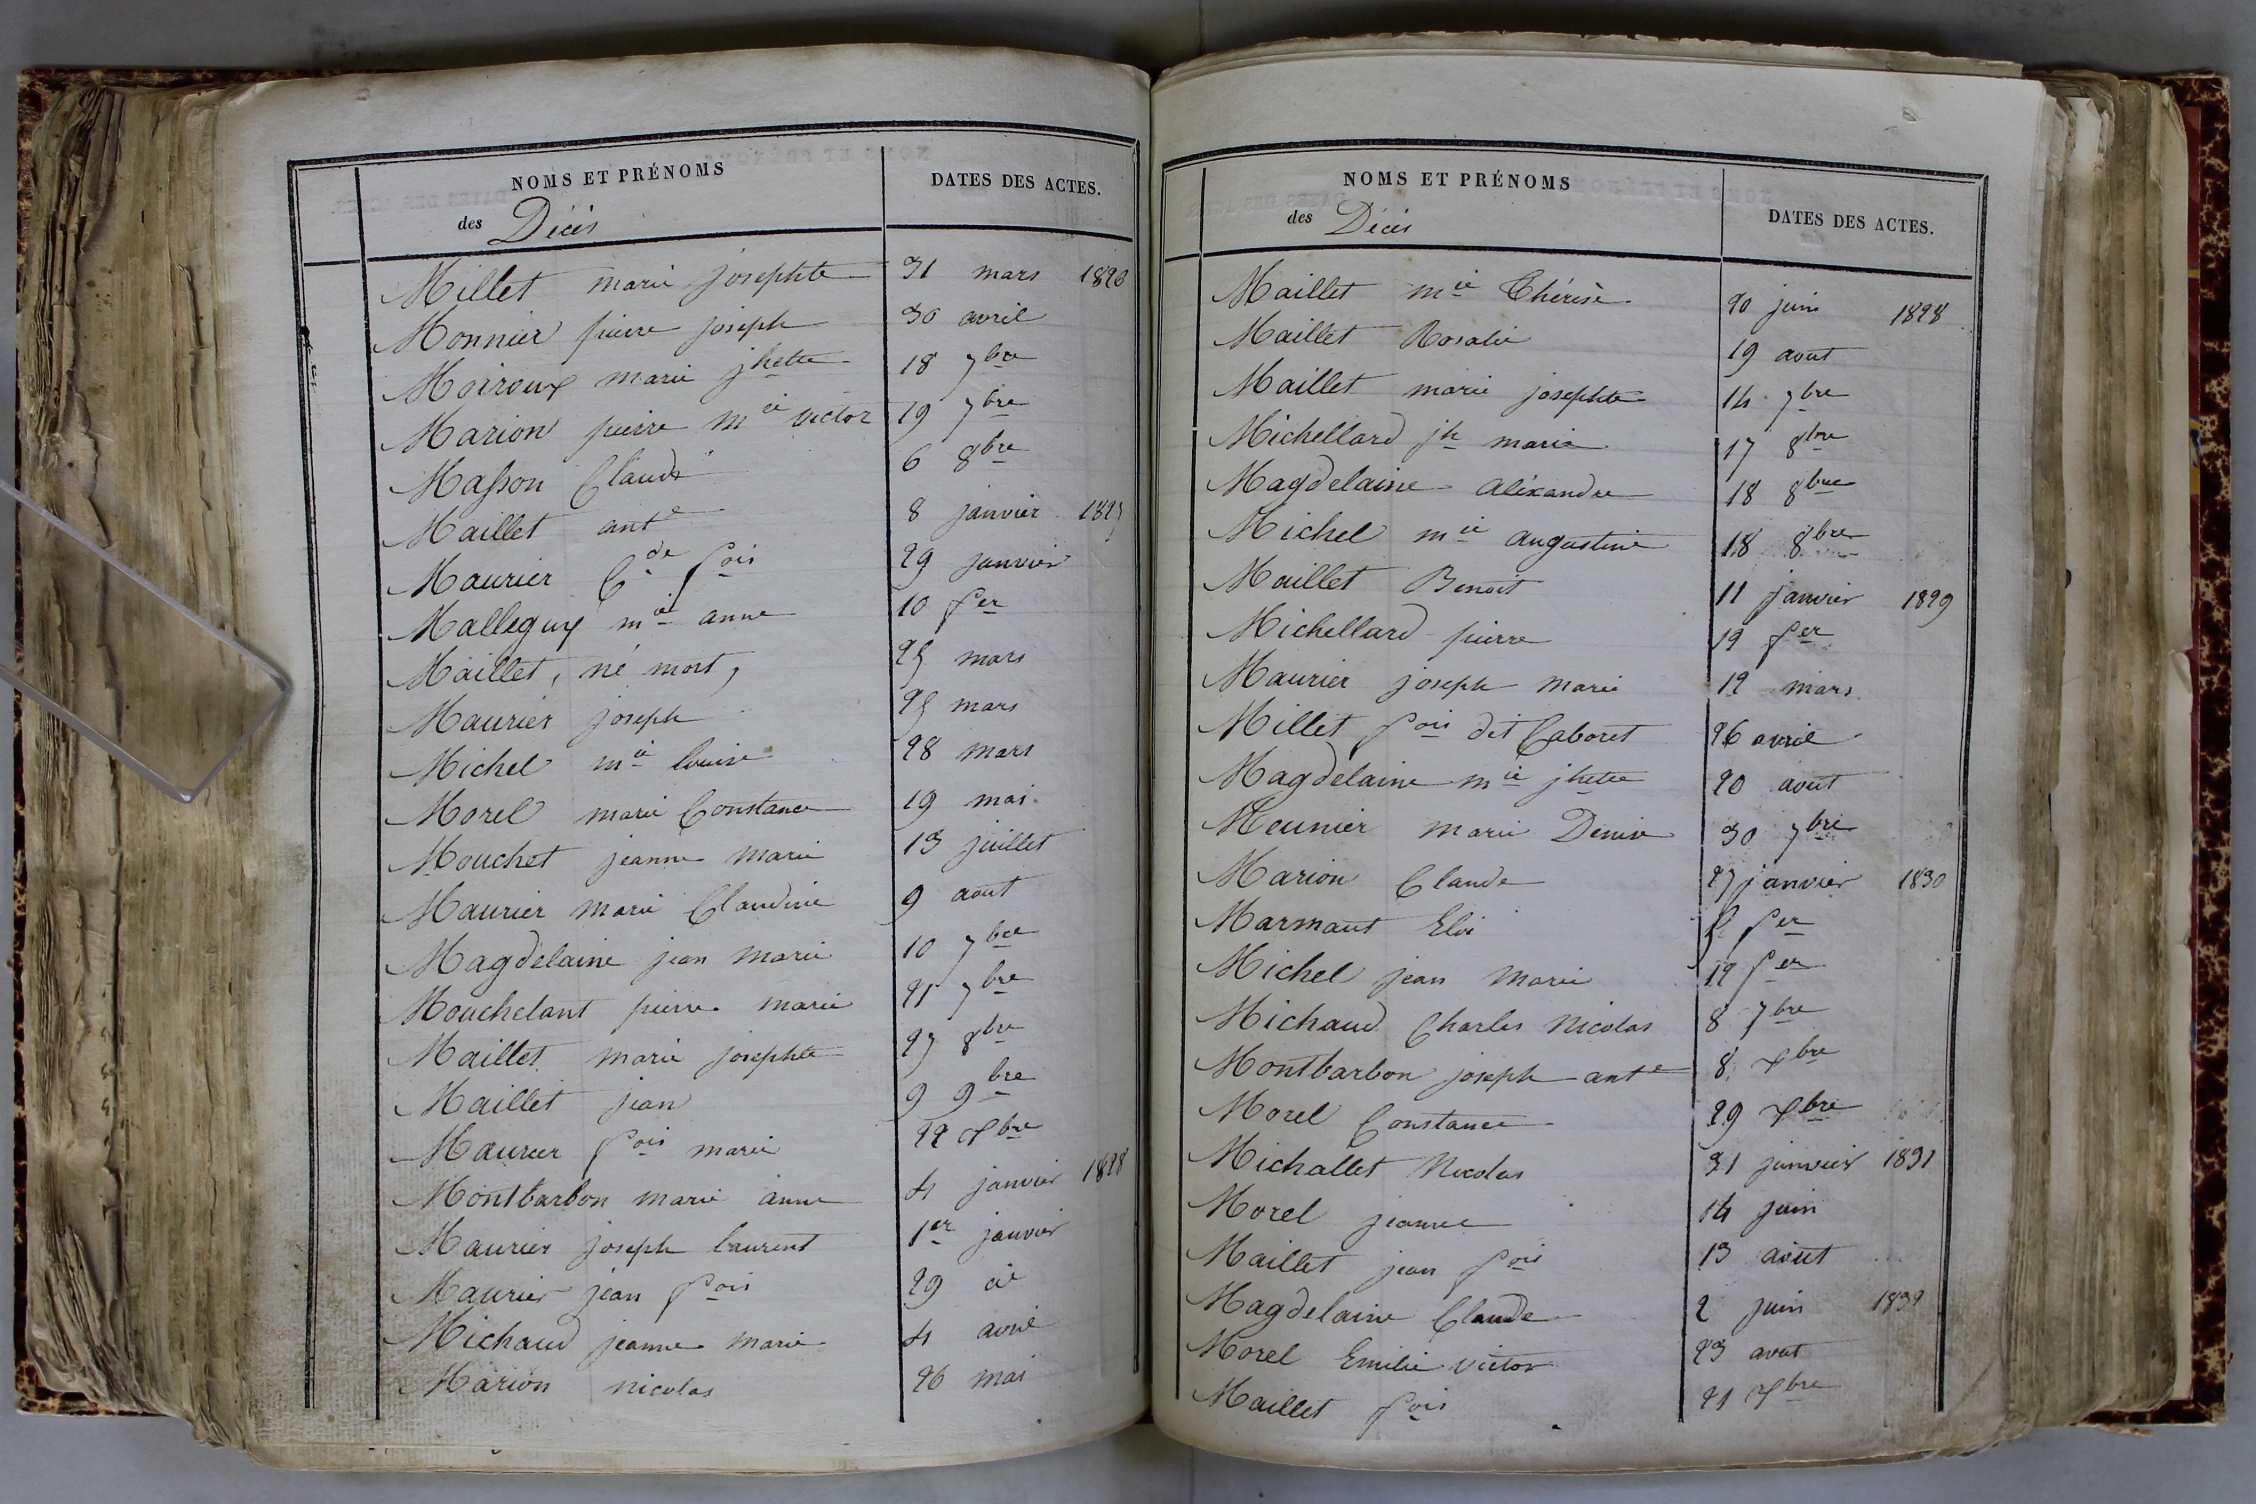 NOMS ET PRÉNOMS
DATES DES ACTES.
des Décès
Millet marie josephte 31 mars 1826
Monnier pierre joseph 30 avril
Moiroux marie jhette 18 7bre
Marion pierre mie victor 19 7bre
Masson Claude 6 8bre
Maillet ante 8 janvier 1827
Maurier Cde fois 29 janvier
Malleguy mie anne 10 fer
Maillet, né mort, 25 mars
Maurier joseph 25 mars
Michel mie louise 28 mars
Morel marie Constance 19 mai
Mouchet jeanne marie 13 juillet
Maurier marie Claudine 9 aout
Magdelaine jean marie 10 7bre
Mouchelant pierre marie 21 7bre
Maillet marie josephte 27 8bre
Maillet jean 9 9bre
Maurier fois marie 22 Xbre
Montbarbon marie anne 4 janvier 1828
Maurier joseph laurent 1er janvier
Maurier jean fois 29
Michaud jeanne marie 4 avril
Marion nicolas 26 mai
NOMS ET PRÉNOMS
DATES DES ACTES.
des Décès
Maillet mie Thérèse 20 juin 1828
Maillet Rosalie 19 aout
Maillet marie josephte 14 7bre
Michellard jh marie 17 8bre
Magdelaine alexandre 18 8bre
Michel mie augustine 18 8bre
Maillet Benoit 11 janvier 1829
Michellard pierre 12 fer
Maurier joseph marie 12 mars
Millet fois dit Caboret 26 avril
Magdelaine mie jhette 20 aout
Meunier marie Denise 30 7bre
Marion Claude 27 janvier 1830
Marmant Eloi fer
Michel jean marie 12 fer
Michaud Charles Nicolas 8 7bre
Montbarbon joseph ante 8 Xbre
Morel Constance 29 Xbre
Michallet Nicolas 31 janvier 1831
Morel jeanne 14 juin
Maillet jean fois 13 aout
Magdelaine Claude 2 juin 1832
Morel Emilie victor 23 aout
Maillet fois 21 Xbre